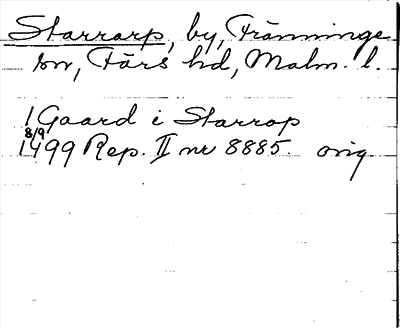 Starrarp, by, Tränninge
sn, Färs hd, Malm. l.
1 Gaard i Starrop
8/9
1499 Rep. II nr 8885. orig